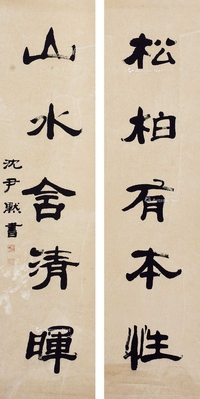 松柏有本性
山水含清暉
沈尹默書